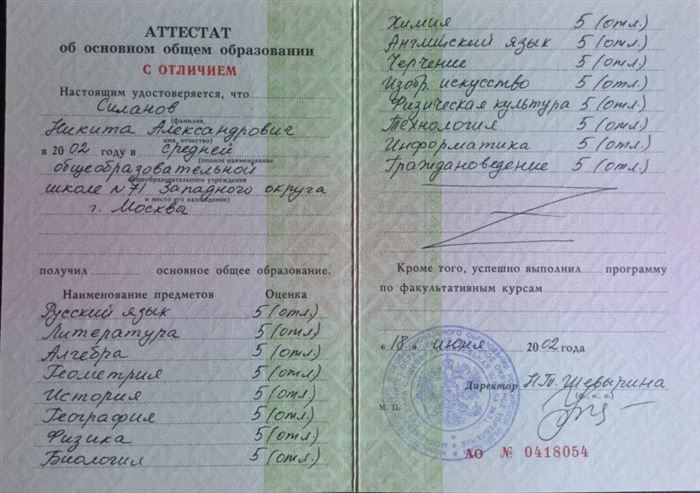 АТТЕСТАТ
об основном общем образовании
С ОТЛИЧИЕМ
Настоящим удостоверяется, что
Силанов
(фамилия,
Никита Александрович
имя, отчество)
в 2002 году в средней
(полное наименование
общеобразовательной
общеобразовательного учреждения
школе №71 Западного округа
и место его нахождения)
г. Москва
получил основное общее образование.
Наименование предметов Оценка
Русский язык 5 (отл.)
Литература 5 (отл.)
Алгебра 5 (отл.)
Геометрия 5 (отл.)
История 5 (отл.)
География 5 (отл.)
Физика 5 (отл.)
Биология 5 (отл.)
Химия 5 (отл.)
Английский язык 5 (отл.)
Черчение 5 (отл.)
Изобр. искусство 5 (отл.)
Физическая культура 5 (отл.)
Технология 5 (отл.)
Информатика 5 (отл.)
Граждановедение 5 (отл.)
Кроме того, успешно выполнил программу
по факультативным курсам
«18» июня 2002 года
Директор Н.Т. Шевырина
(ф., и., о.)
М. П.
АО № 0418054